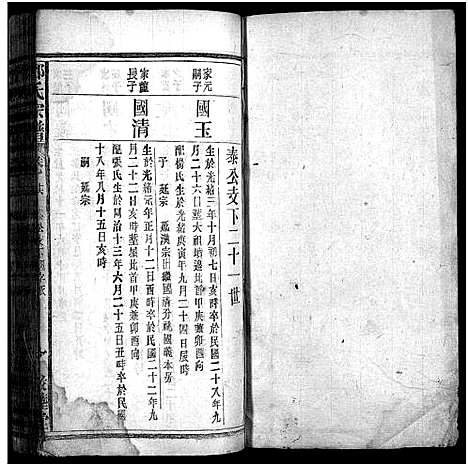 泰公支下二十一世
家元嗣子
國玉
生於光緒三年十月初七日亥時卒於民國二十八年九
月二十六日塟大祖墳邊比首甲庚兼卯酉向
配楊氏生於光緒庚寅年九月二十四日辰時
子 延宗 延漢宗出繼國清分祧國義本房
長子
國清
生於光緒元年正月十二日酉時卒於民國二十二年九
月二十六日亥時塟屋比首甲庚兼卯酉向
配張氏生於同治十三年六月二十五日丑時卒於民國
十八年八月十五日亥時
嗣 延宗
氏宗譜